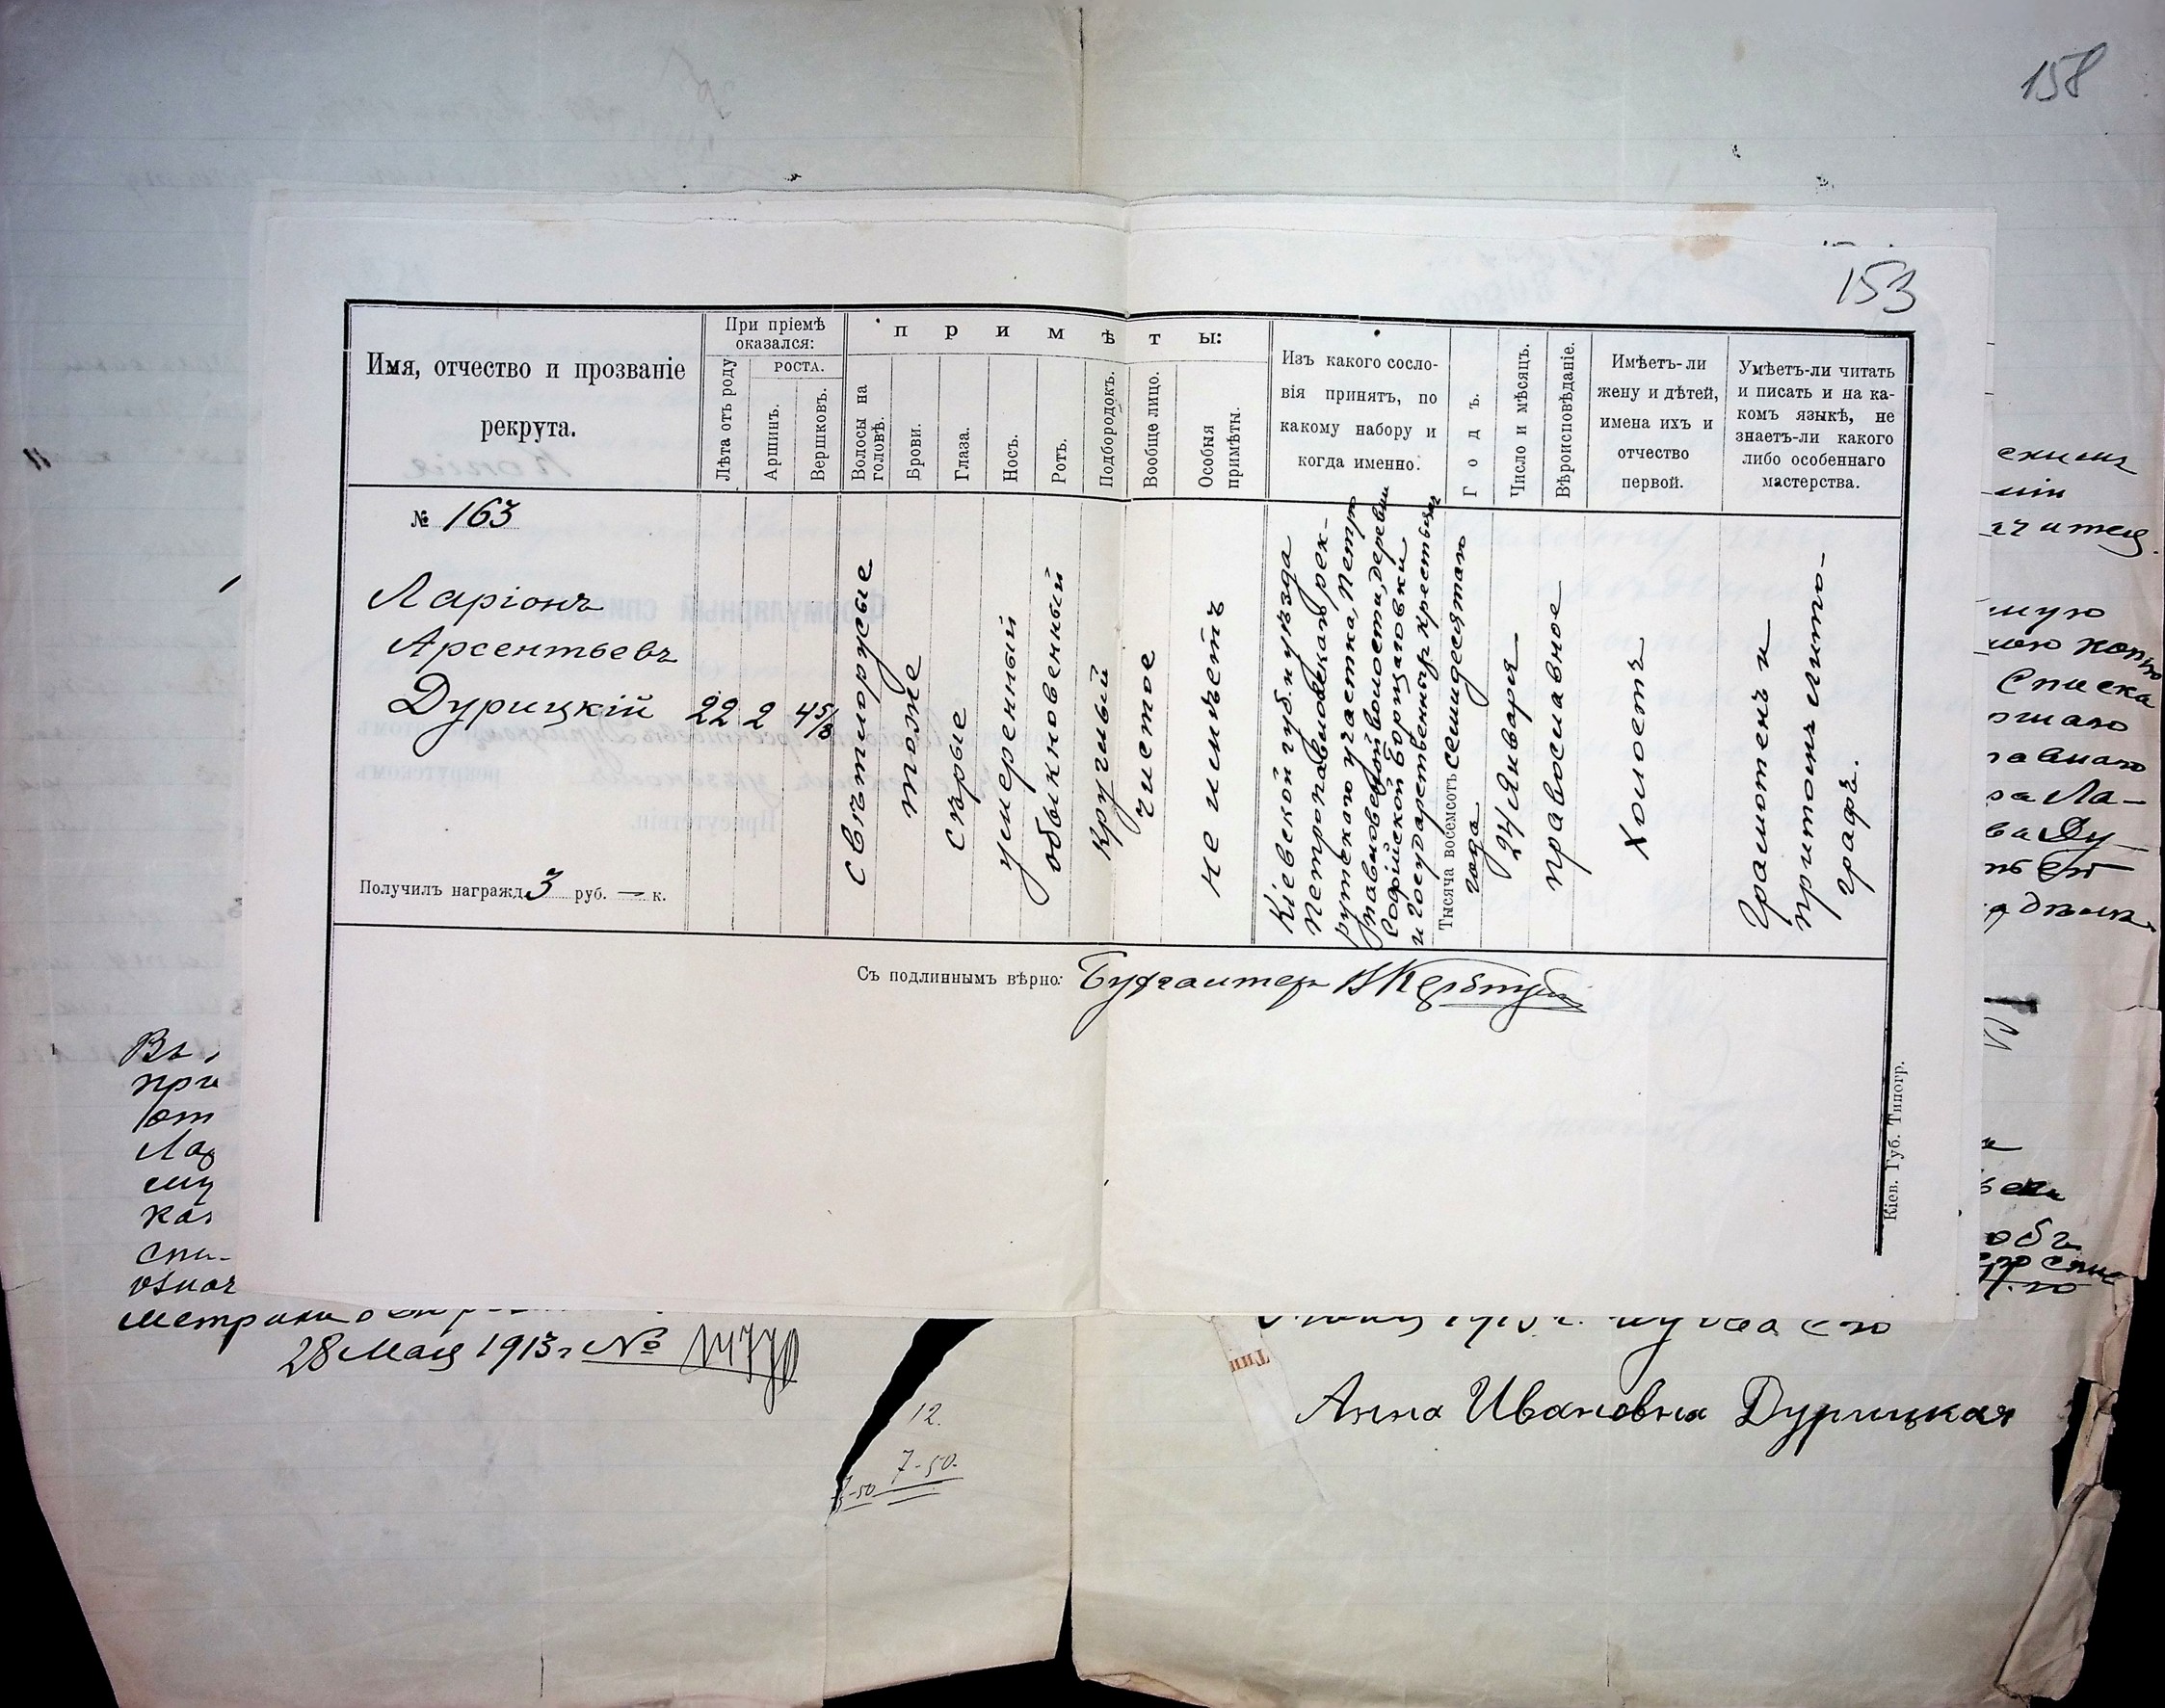 158
153
Имя, отчество и прозваніе
рекрута.
При пріемѣ
оказался:
Лѣта отъ роду
РОСТА.
Аршинъ.
Вершковъ.
ПРИМѢТЫ:
Волосы на
головѣ.
Брови.
Глаза.
Носъ.
Ротъ.
Подбородокъ.
Вообще лицо.
Особыя
примѣты.
Изъ какого сосло-
вія принятъ, по
какому набору и
когда именно.
Годъ.
Число и мѣсяцъ.
Вѣроисповѣданіе.
Имѣетъ-ли
жену и дѣтей,
имена ихъ и
отчество
первой.
Умѣетъ-ли читать
и писать и на ка-
комъ языкѣ, не
знаетъ-ли какого
либо особеннаго
мастерства.
№ 163
Ларіонъ
Арсентьевъ
Дурицкій
22
2
4 5/8
свѣтлорусые
тоже
сѣрые
умеренный
обыкновенный
круглый
чистое
не имѣетъ
Кіевской губ. и уѣзда
Петропавловскаго рек-
рутскаго участка, Петро
павловской волости, деревни
Софійской Борщаговки
и государственныхъ крестьянъ
Тысяча восемсотъ семидесятаго
года
24 Января
православное
Холостъ
Грамотенъ и
притомъ лито-
графъ.
Получилъ награжд. 3 руб. — к.
Съ подлиннымъ вѣрно: Бухгалтеръ
Кіев. Губ. Типогр.
Въ
при
от
Лар
ему
каз
спи-
означ
метрики о
28 Мая 1913 г №
12.
7-50.
7-50
Списка
Анна Ивановна Дурицкая